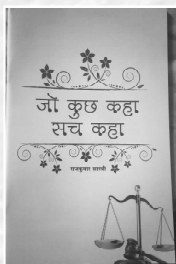 जो कुछ कहा
सच कहा
राजकुमार सारथी